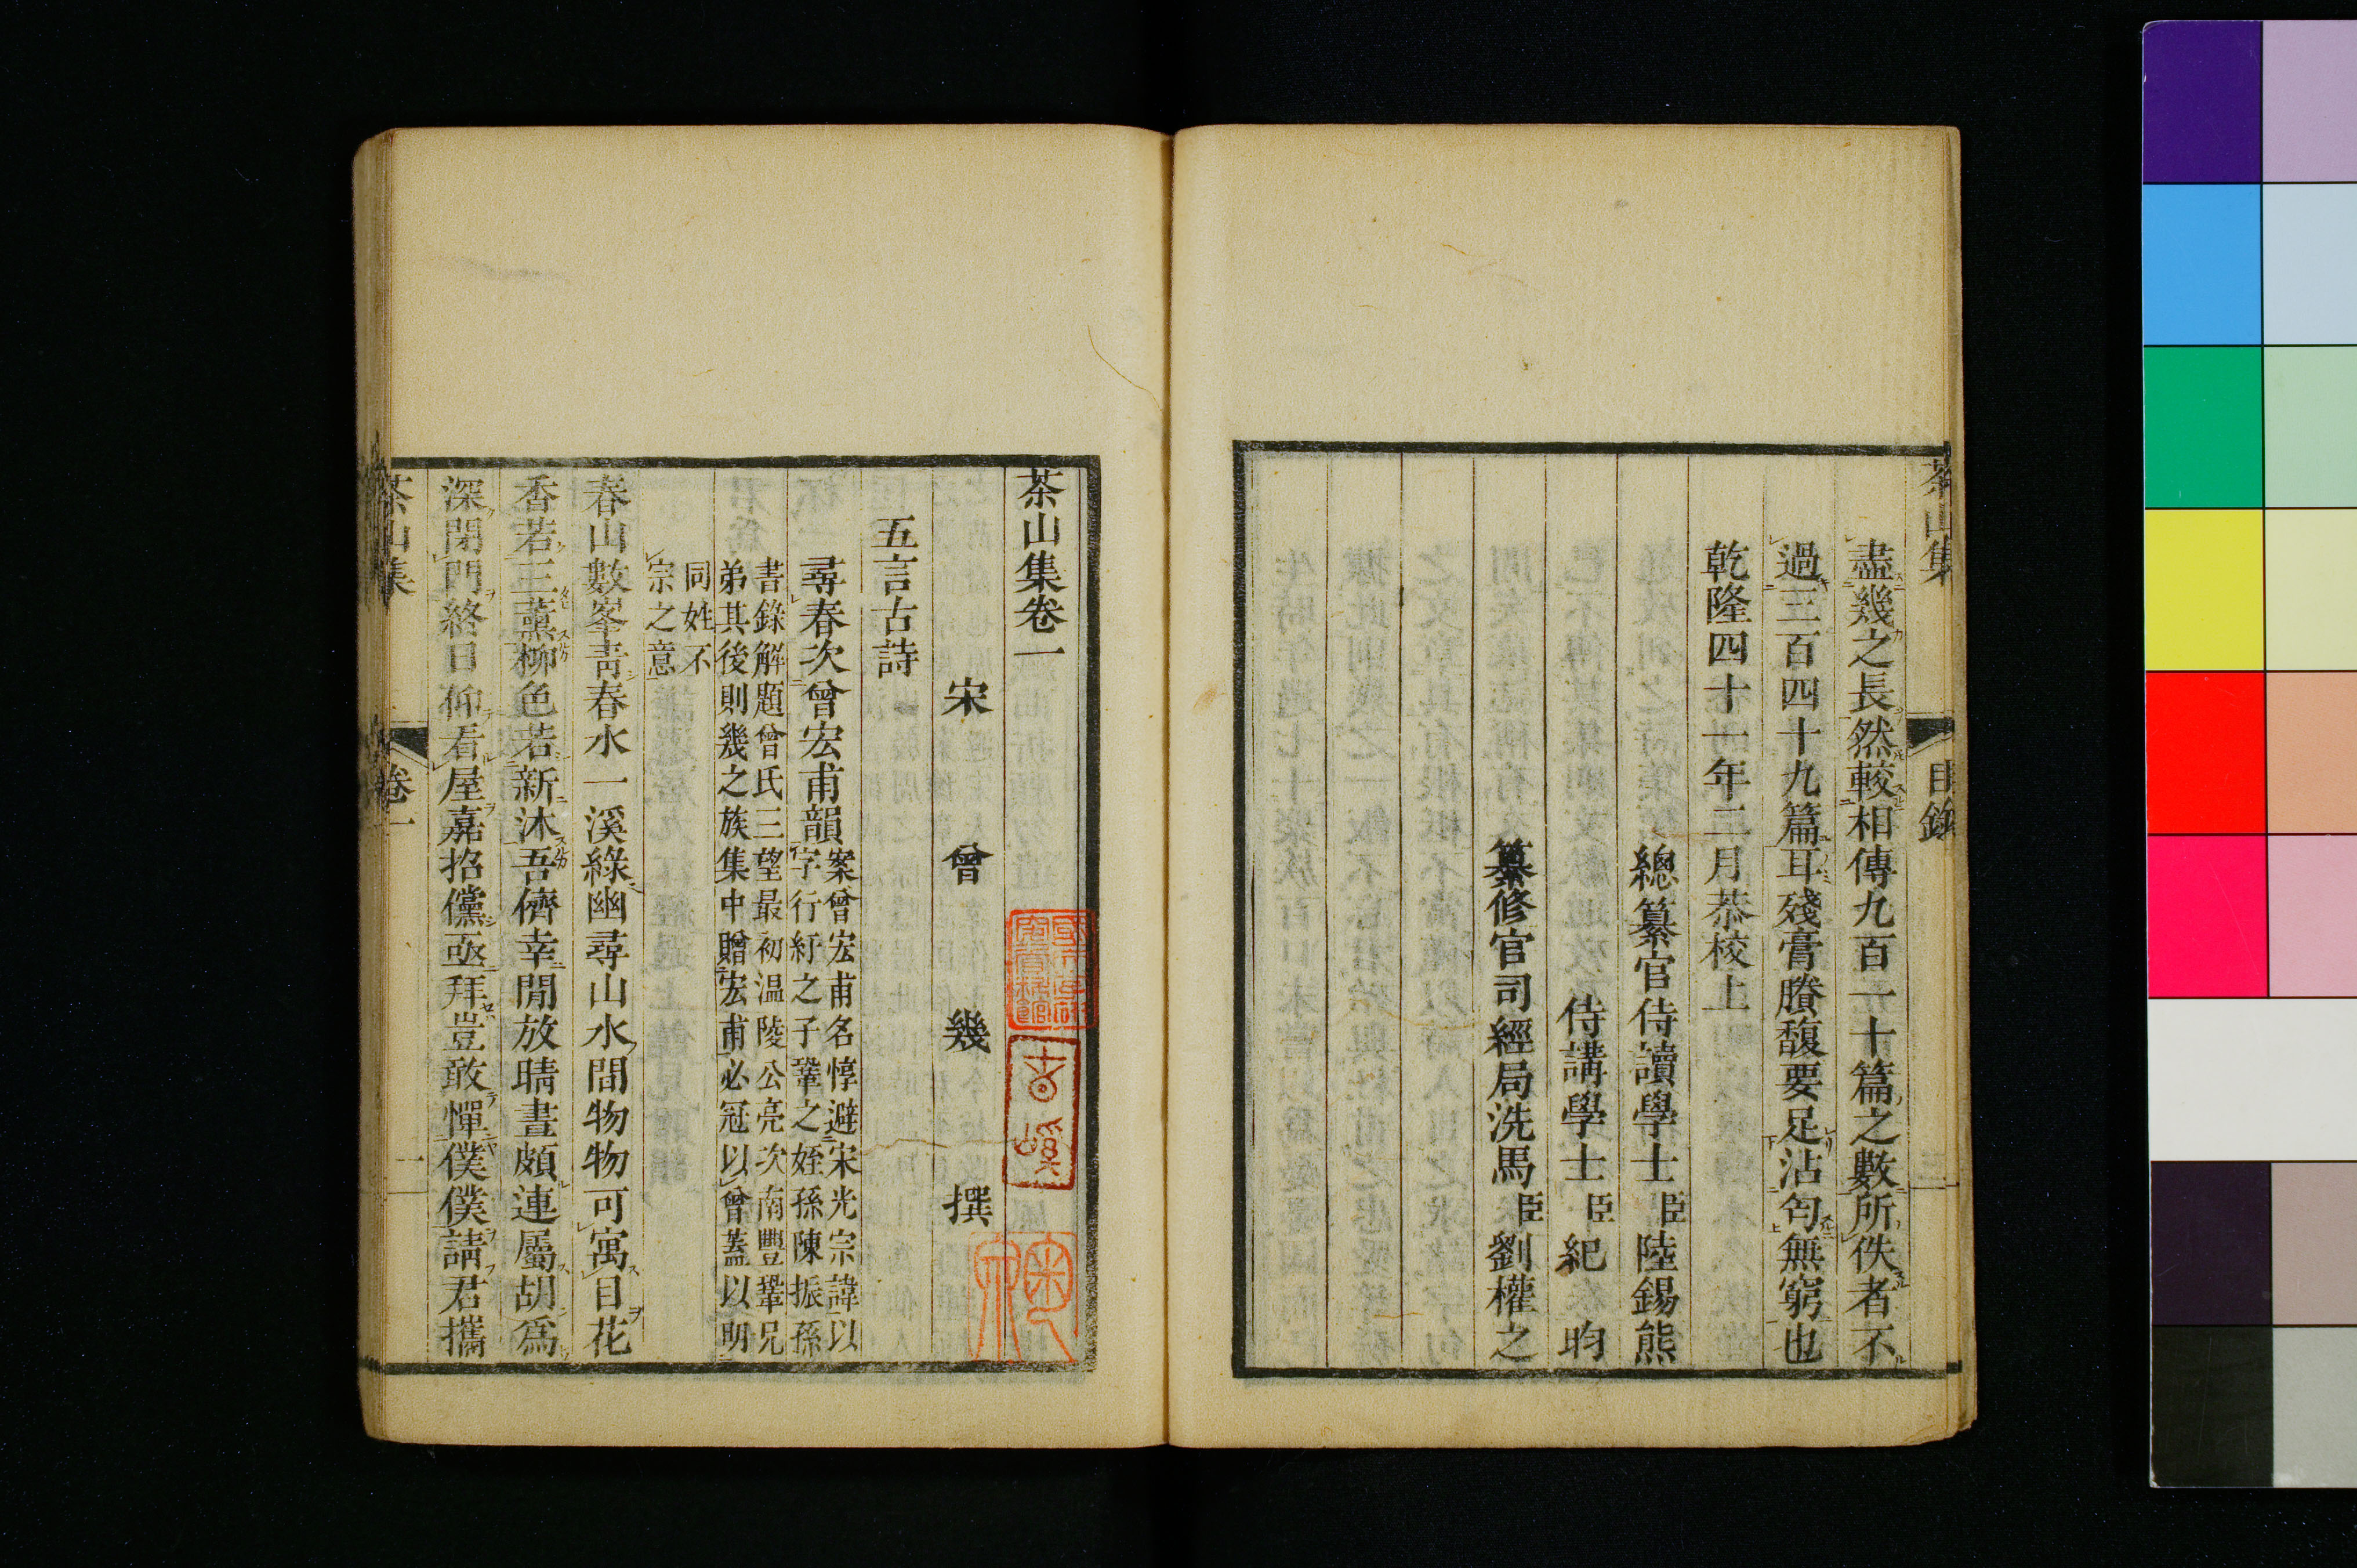 茶山集
目錄
盡幾之長然較相傳九百一十篇之數所佚者不
過三百四十九篇耳殘膏賸馥要足沾匄無窮也
乾隆四十一年二月恭校上
總纂官侍讀學士臣陸錫熊
侍講學士臣紀昀
纂修官司經局洗馬臣劉權之
茶山集卷一
宋曾幾撰
五言古詩
尋春次曾宏甫韻案曾宏甫名惇避宋光宗諱以
字行紆之子鞏之姪孫陳振孫
書錄解題曾氏三望最初温陵公亮次南豐鞏兄
弟其後則幾之族集中贈宏甫必冠以曾蓋以明
同姓不
宗之意
春山數峯靑春水一溪綠幽尋山水間物物可寓目花
香若三薰柳色若新沐吾儕幸閒放晴晝頗連屬胡爲
深閉門終日仰看屋嘉招儻亟拜豈敢憚僕僕請君攜
茶山集
卷一
一